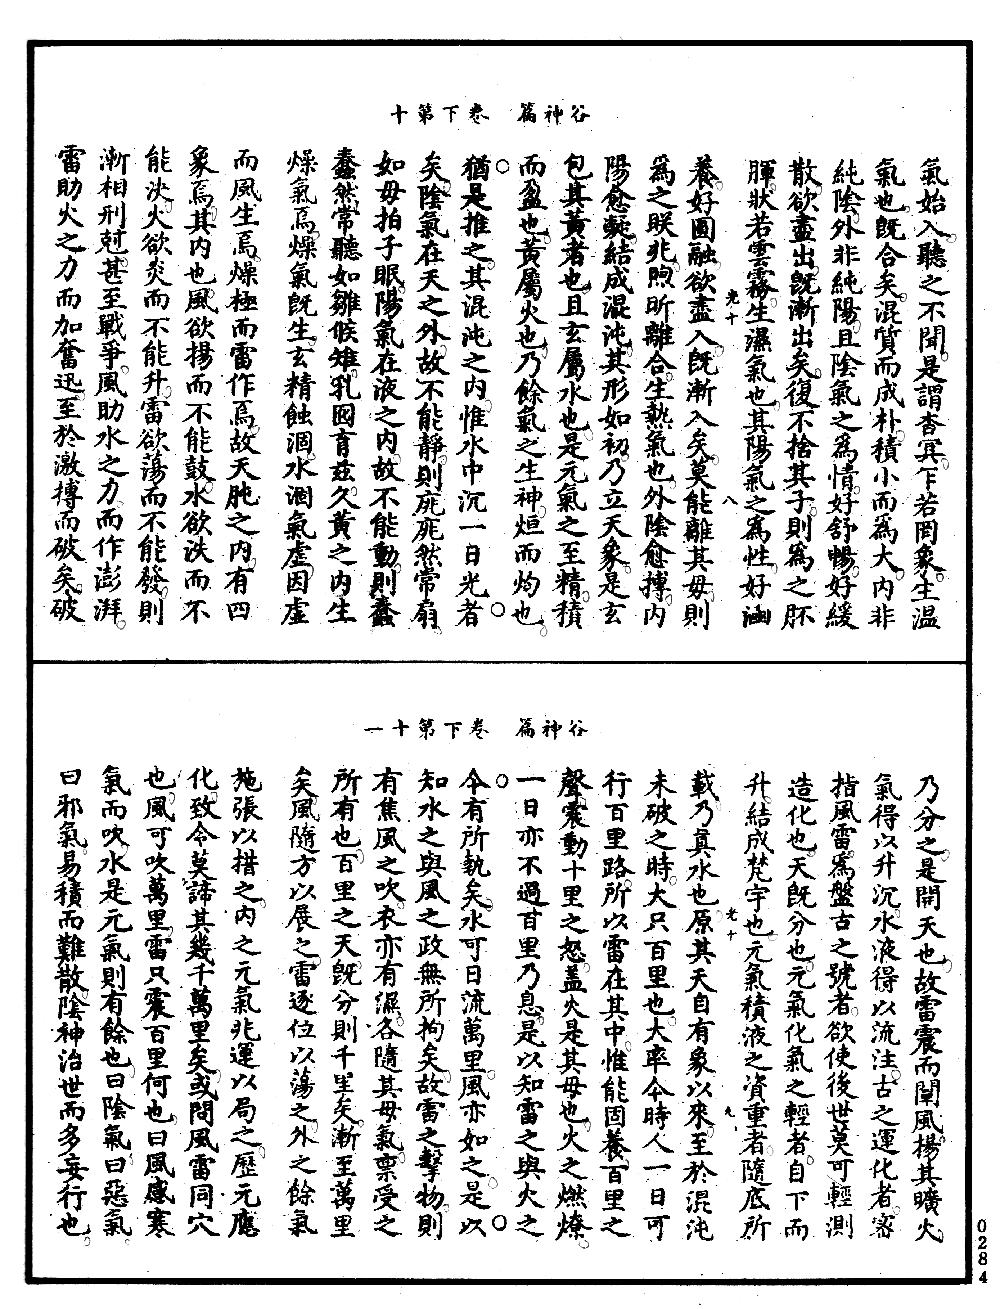 谷神篇　卷下第十
氣始入聽之不聞是謂杳冥下若罔象生溫
氣也旣合矣混質而成朴積小而爲大內非
純陰外非純陽且陰氣之爲情好舒暢好緩
散欲盡出旣漸出矣復不捨其子則爲之胚
暉狀若雲霧生濕氣也其陽氣之爲性好涵
光十
八
養好圓融欲盡入旣漸入矣莫能離其母則
爲之眹兆煦昕離合生熱氣也外陰愈摶內
陽愈凝結成混沌其形如初乃立天象是玄
包其黃者也且玄屬水也是元氣之至精積
而盈也黃屬火也乃餘氣之生神烜而灼也
猶是推之其混沌之內惟水中沉一日光者
矣陰氣在天之外故不能靜則庬庬然常扇
如母拍子眠陽氣在液之內故不能動則蠢
蠢然常聽如雛候雉乳囫育玆久黃之內生
燥氣焉燥氣旣生玄精蝕涸水涸氣虛因虛
而風生焉燥極而雷作焉故天肫之內有四
象焉其內也風欲揚而不能鼓水欲泆而不
能決火欲炎而不能升雷欲蕩而不能發則
漸相刑尅甚至戰爭風助水之力而作澎湃
雷助火之力而加奮迅至於激摶而破矣破
谷神篇　卷下第十一
乃分之是開天也故雷震而闡風揚其曠火
氣得以升沉水液得以流注古之運化者密
指風雷爲盤古之號者欲使後世莫可輕測
造化也天旣分也元氣化氣之輕者自下而
升結成梵字也元氣積液之資重者隨底所
光十
九
載乃眞水也原其天自有象以來至於混沌
未破之時大只百里也大率今時人一日可
行百里路所以雷在其中惟能固養百里之
聲震動十里之怒蓋火是其母也火之燃燎
一日亦不過百里乃息是以知雷之與火之
今有所執矣水可日流萬里風亦如之是以
知水之與風之政無所拘矣故雷之擊物則
有焦風之吹衣亦有濕各隨其母氣稟受之
所有也百里之天旣分則千里矣漸至萬里
矣風隨方以展之雷逐位以蕩之外之餘氣
施張以措之內之元氣兆運以局之歷元應
化致今莫諦其幾千萬里矣或問風雷同穴
也風可吹萬里雷只震百里何也曰風感寒
氣而吹水是元氣則有餘也曰陰氣曰惡氣
曰邪氣易積而難散陰神治世而多妄行也
0284